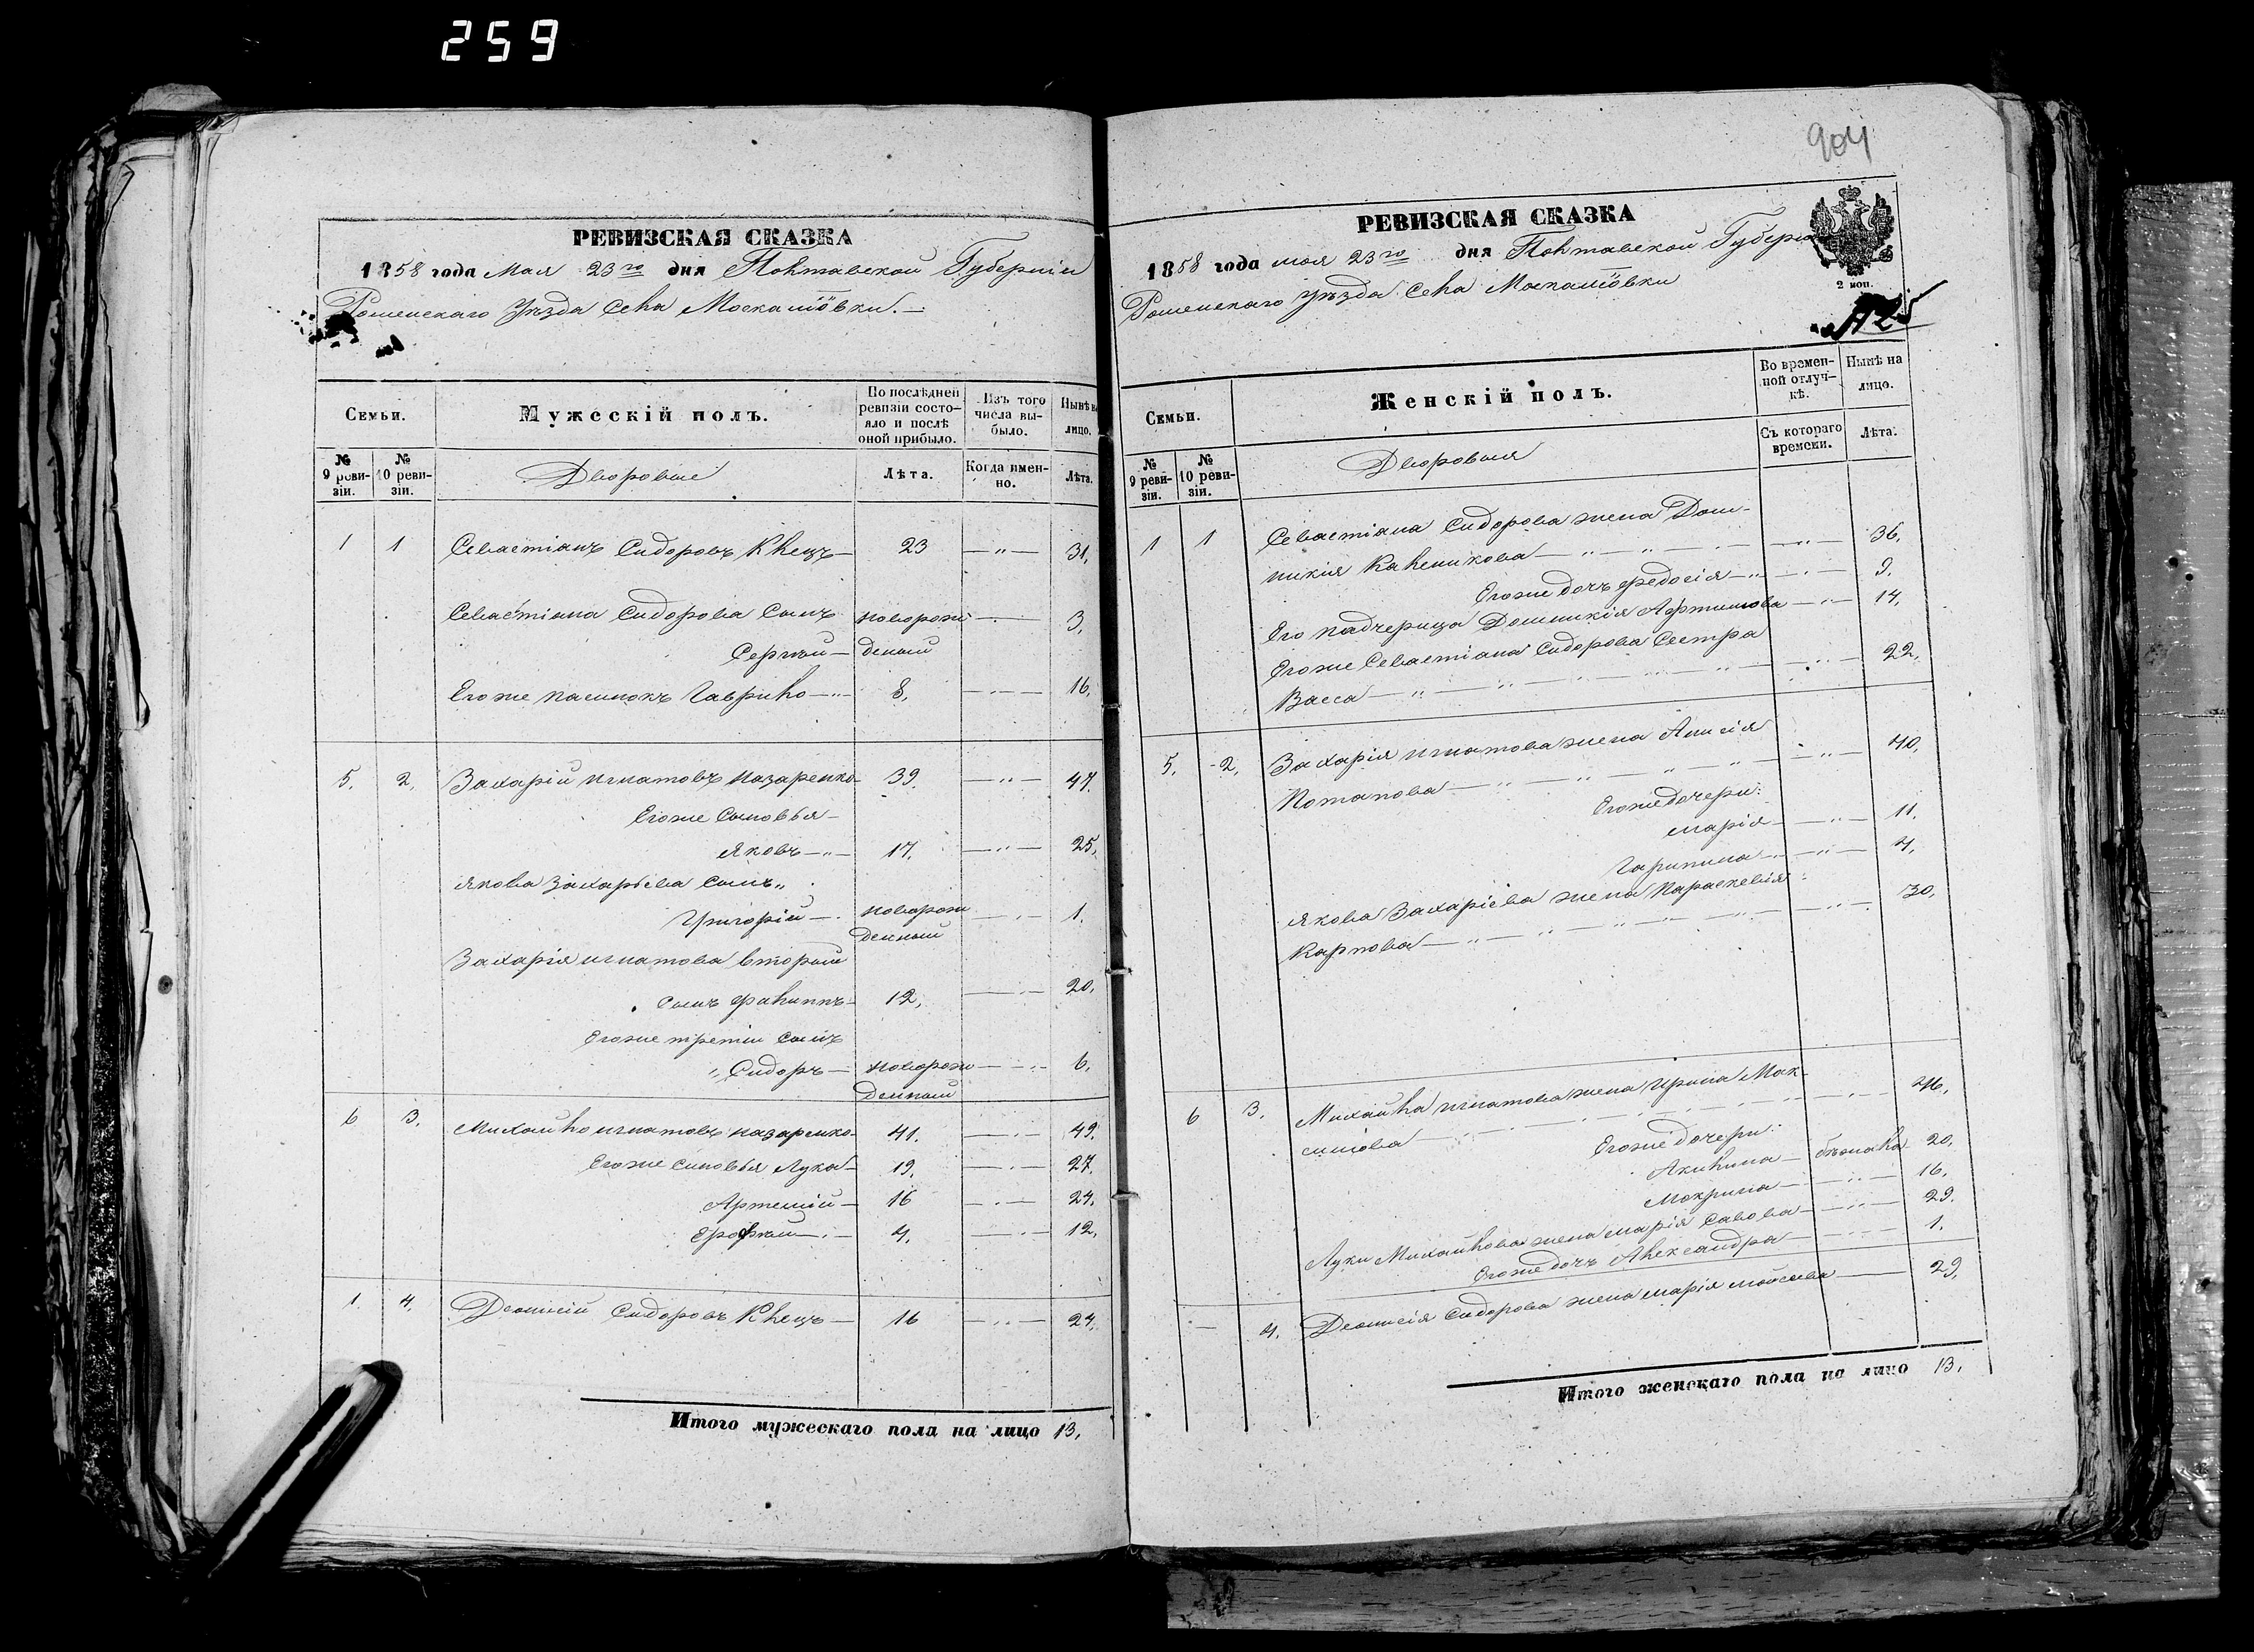 259
РЕВИЗСКАЯ СКАЗКА
1858 года Мая 23го дня Полтавской Губерніи
Роменскаго Уѣзда Села Москалiовки.
Семьи.
Мужескій полъ.
По послѣдней ревизіи состояло и послѣ оной прибыло.
Изъ того числа выбыло.
Нынѣ на лицо.
№ 9 ревизіи.
№ 10 ревизіи.
Дворовые
Лѣта.
Когда именно.
Лѣта.
1 1 Севастіанъ Сидоровъ Клецъ 23 31.
Севастіана Сидорова Сынъ новорож 3.
Сергѣй деный
Егоже пасинокъ Гаврило 8. 16.
5. 2. Захарій Игнатовъ Назаренко 39. 47.
Егоже Сыновья
Яковъ 17. 25.
Якова Захарьева Сынъ
Григорій новорож 1.
денный
Захарія Игнатова вторый
Сынъ Филиппъ 12. 20.
Егоже третій Сынъ
Сидоръ новорож 6.
денный
6 3. Михайло Игнатовъ Назаренко 41. 49.
Егоже Сыновья Лука 19. 27.
Артемій 16 24.
Ерофѣй 4. 12.
1. 4. Деонисій Сидоровъ Клецъ 16 24.
Итого мужескаго пола на лицо 13.
904
РЕВИЗСКАЯ СКАЗКА
1858 года мая 23го дня Полтавской Губерніи
2 коп.
Роменскаго Уѣзда Села Москалiовки
Семьи.
Женскій полъ.
Во временной отлучкѣ.
Нынѣ на лицо.
№ 9 ревизіи.
№ 10 ревизіи.
Дворовыя
Съ котораго времени.
Лѣта.
1 1 Севастіана Сидорова жена Дом-
никія Каленикова 36.
Егоже дочь Федосія 9.
Его падчерица Домникія Артимова 14.
Егоже Севастіана Сидорова Сестра
Васса 22.
5. 2. Захарія Игнатова жена Анисія
Потапова 40.
Егоже дочери:
Марія 11.
Гарпина 4.
Якова Захаріева жена Параскевія
Карпова 30.
6 3. Михайла Игнатова жена Ирина Мак-
симова 46.
Егоже дочери:
Акилина бѣжала 20.
Мокрина 16.
Луки Михайлова жена Марія Савова 29.
Егоже дочь Александра 1.
4. Деонисія Сидорова жена Марія Мойсеева 29.
Итого женскаго пола на лицо 13.